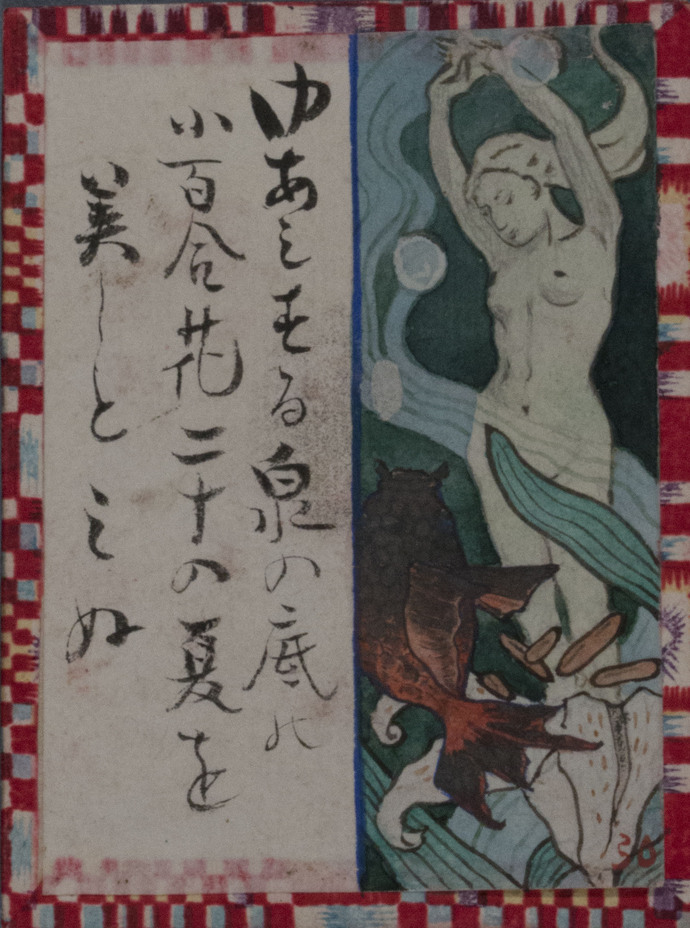 ゆあみする泉の底の
小百合花二十の夏を
美しとみぬ
30